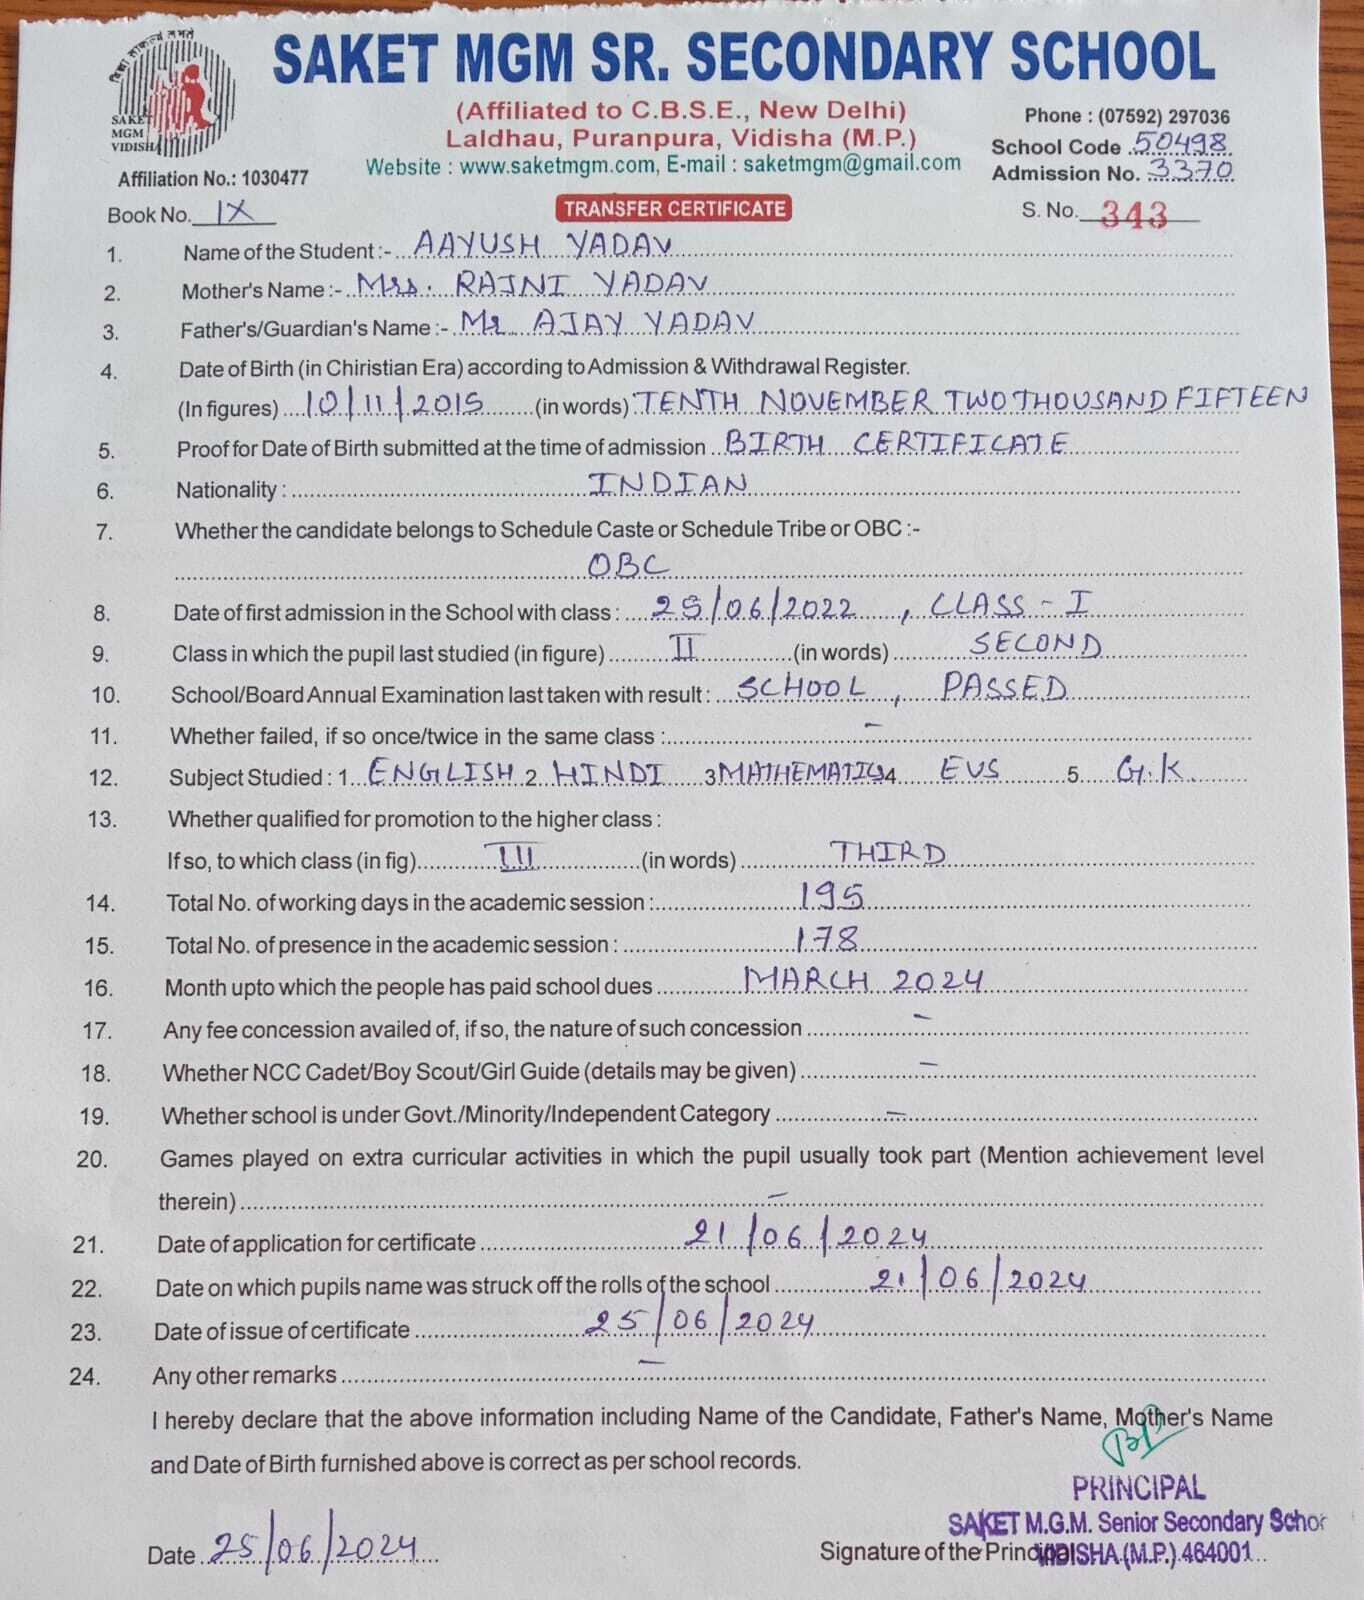 शिक्षा साकल्यं लभते
SAKET
MGM
VIDISHA
SAKET MGM SR. SECONDARY SCHOOL
(Affiliated to C.B.S.E., New Delhi)
Laldhau, Puranpura, Vidisha (M.P.)
Website : www.saketmgm.com, E-mail : saketmgm@gmail.com
Phone : (07592) 297036
School Code 50498
Admission No. 3370
Affiliation No.: 1030477
Book No. IX
TRANSFER CERTIFICATE
S. No. 343
1. Name of the Student :- AAYUSH YADAV
2. Mother's Name :- Mrs. RAJNI YADAV
3. Father's/Guardian's Name :- Mr AJAY YADAV
4. Date of Birth (in Chiristian Era) according to Admission & Withdrawal Register.
(In figures) 10/11/2015 (in words) TENTH NOVEMBER TWO THOUSAND FIFTEEN
5. Proof for Date of Birth submitted at the time of admission BIRTH CERTIFICATE
6. Nationality : INDIAN
7. Whether the candidate belongs to Schedule Caste or Schedule Tribe or OBC :-
OBC
8. Date of first admission in the School with class : 25/06/2022, CLASS - I
9. Class in which the pupil last studied (in figure) II (in words) SECOND
10. School/Board Annual Examination last taken with result : SCHOOL, PASSED
11. Whether failed, if so once/twice in the same class : -
12. Subject Studied : 1 ENGLISH 2 HINDI 3 MATHEMATICS 4 EVS 5. G.K.
13. Whether qualified for promotion to the higher class :
If so, to which class (in fig) III (in words) THIRD
14. Total No. of working days in the academic session : 195
15. Total No. of presence in the academic session : 178
16. Month upto which the people has paid school dues MARCH 2024
17. Any fee concession availed of, if so, the nature of such concession -
18. Whether NCC Cadet/Boy Scout/Girl Guide (details may be given) -
19. Whether school is under Govt./Minority/Independent Category -
20. Games played on extra curricular activities in which the pupil usually took part (Mention achievement level
therein) -
21. Date of application for certificate 21/06/2024
22. Date on which pupils name was struck off the rolls of the school 21/06/2024
23. Date of issue of certificate 25/06/2024
24. Any other remarks -
I hereby declare that the above information including Name of the Candidate, Father's Name, Mother's Name
and Date of Birth furnished above is correct as per school records.
PRINCIPAL
SAKET M.G.M. Senior Secondary School
VIDISHA (M.P.) 464001
Date 25/06/2024
Signature of the Principal